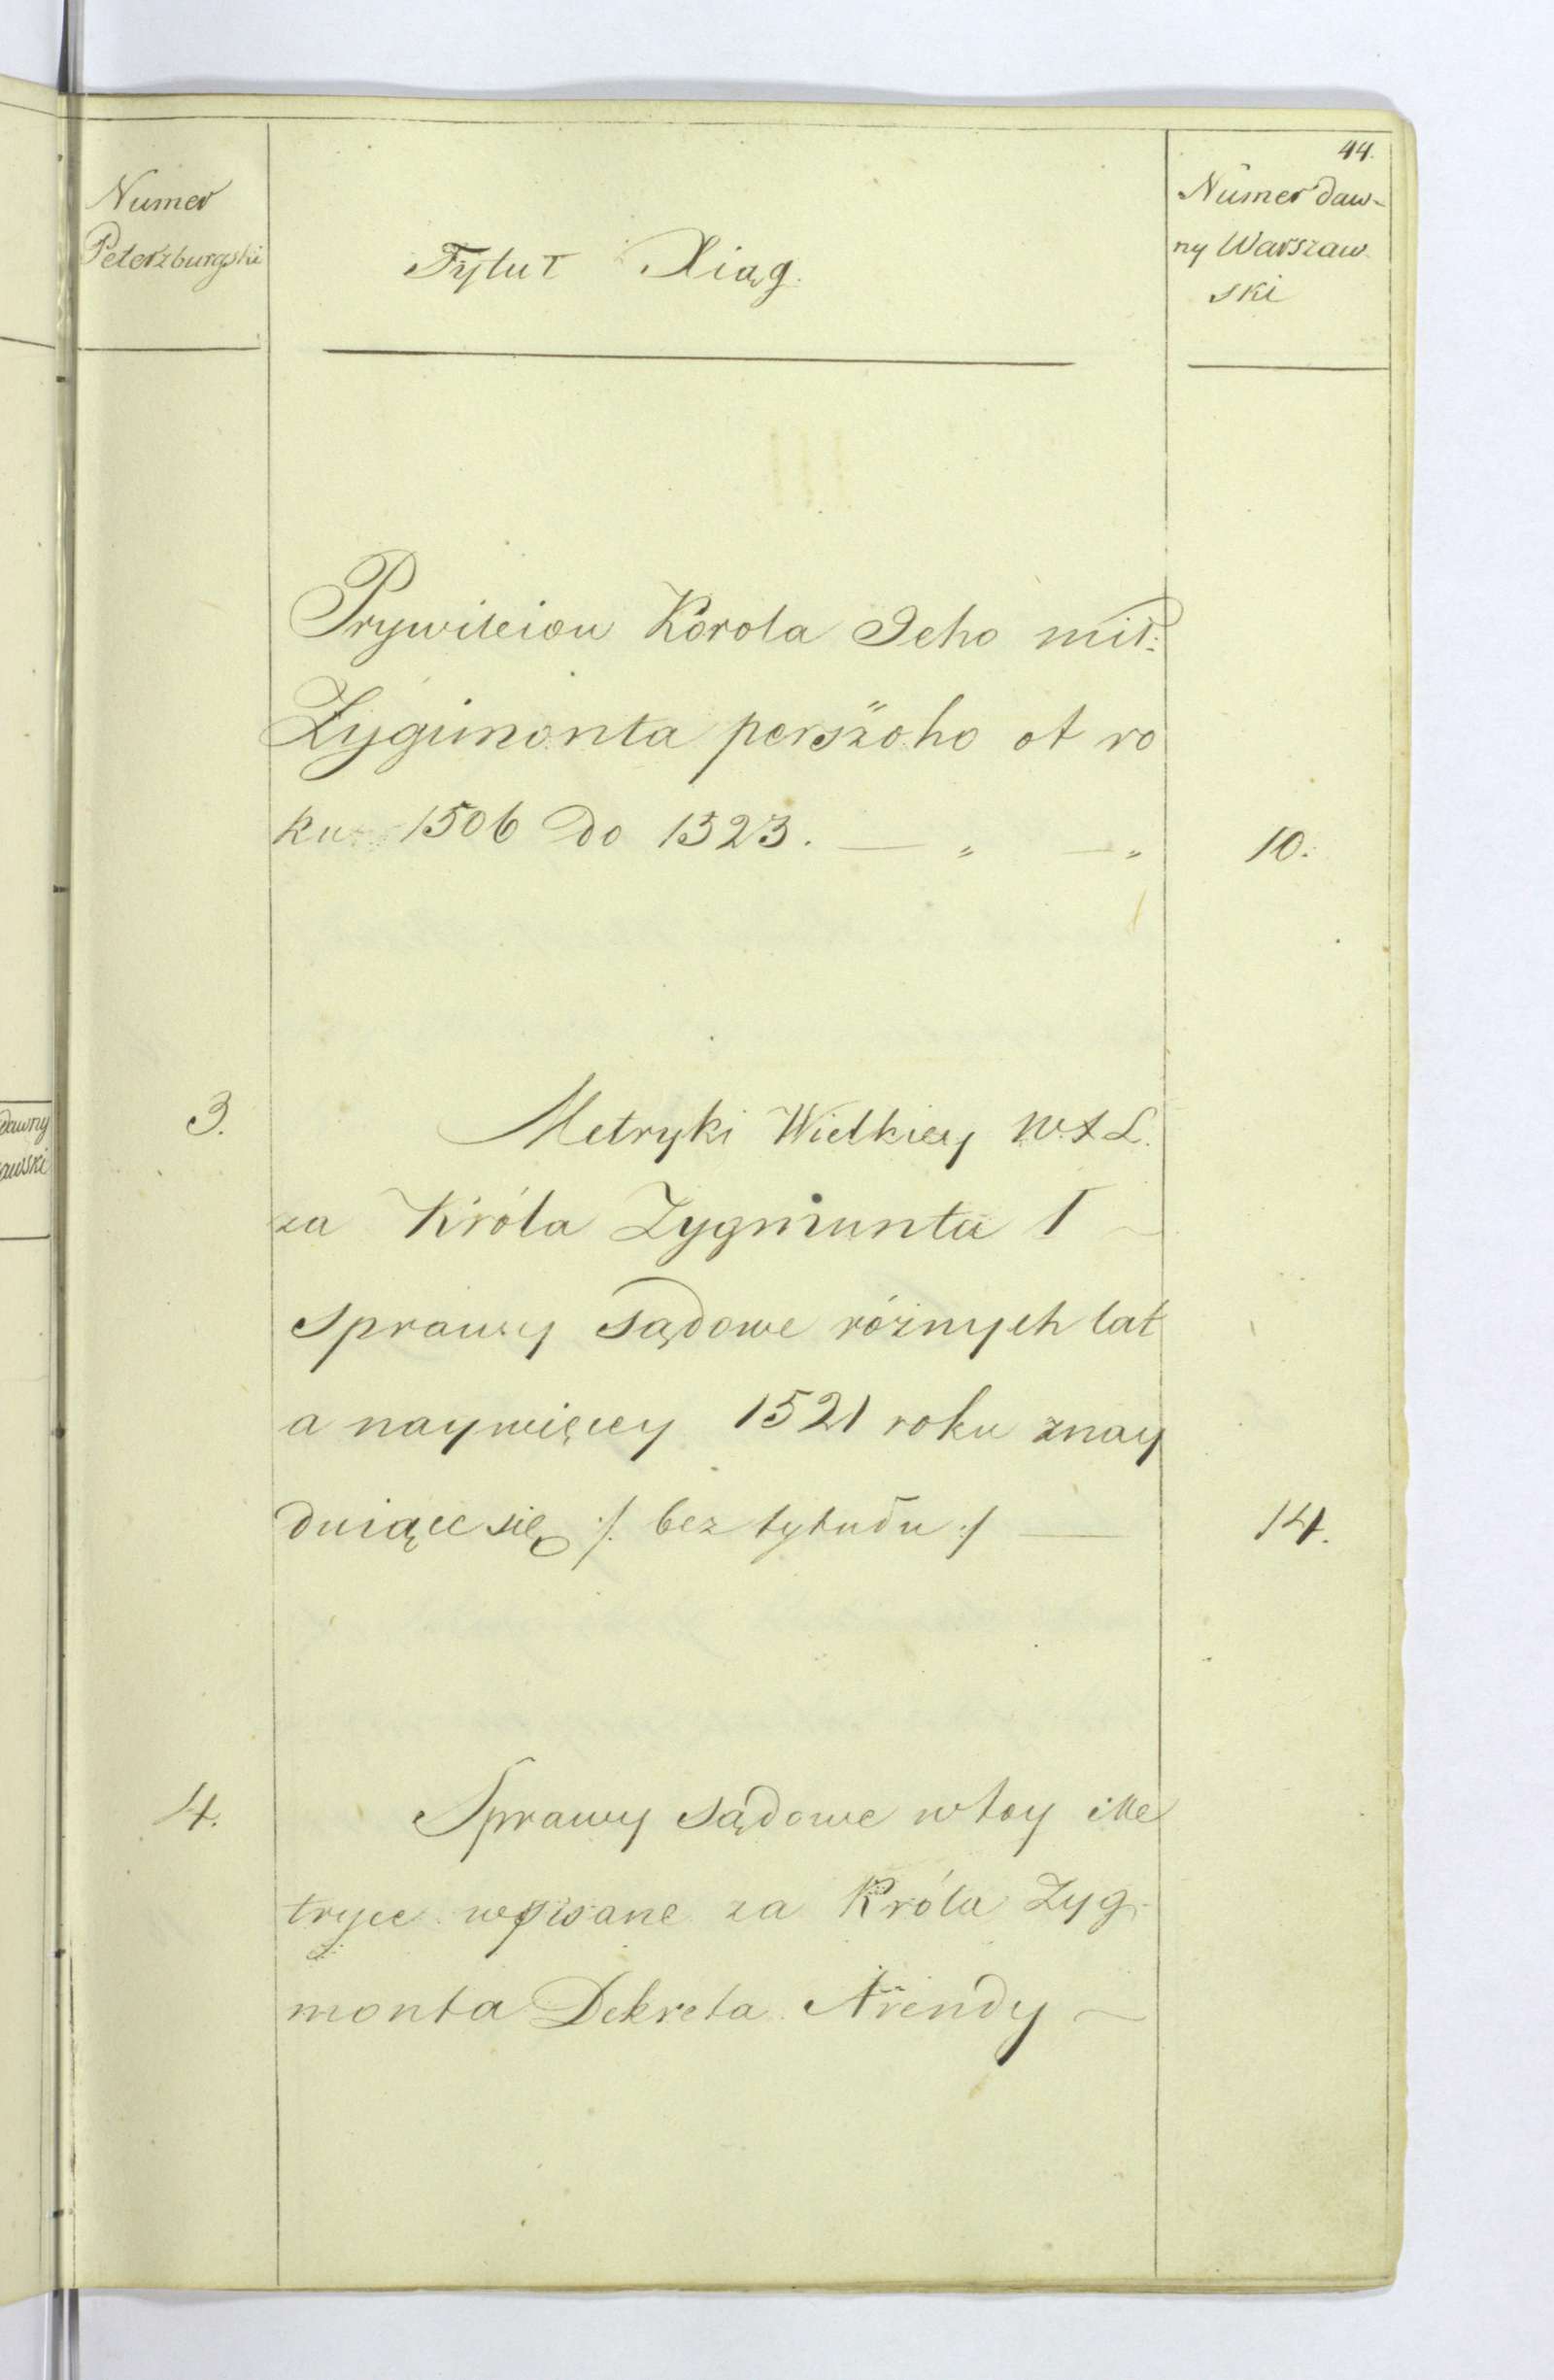 44.
Numer
Peterzburgski
Tytuł Xiąg.
Numer daw-
ny Warszaw
ski
Prywileiow Korola Jeho mił:
Zygimonta perszoho ot ro
ku 1506 do 1523. — " — "
10.
3.
Metryki Wielkiey W. X L.
za Króla Zygmunta I
sprawy sądowe różnych lat
a naywięcey 1521 roku znay
duiące się :/. bez tytułu :/ —
14.
4.
Sprawy sądowe w tey Me
tryce wpisane za Króla Zyg-
monta Dekreta Arendy
dawny
awski